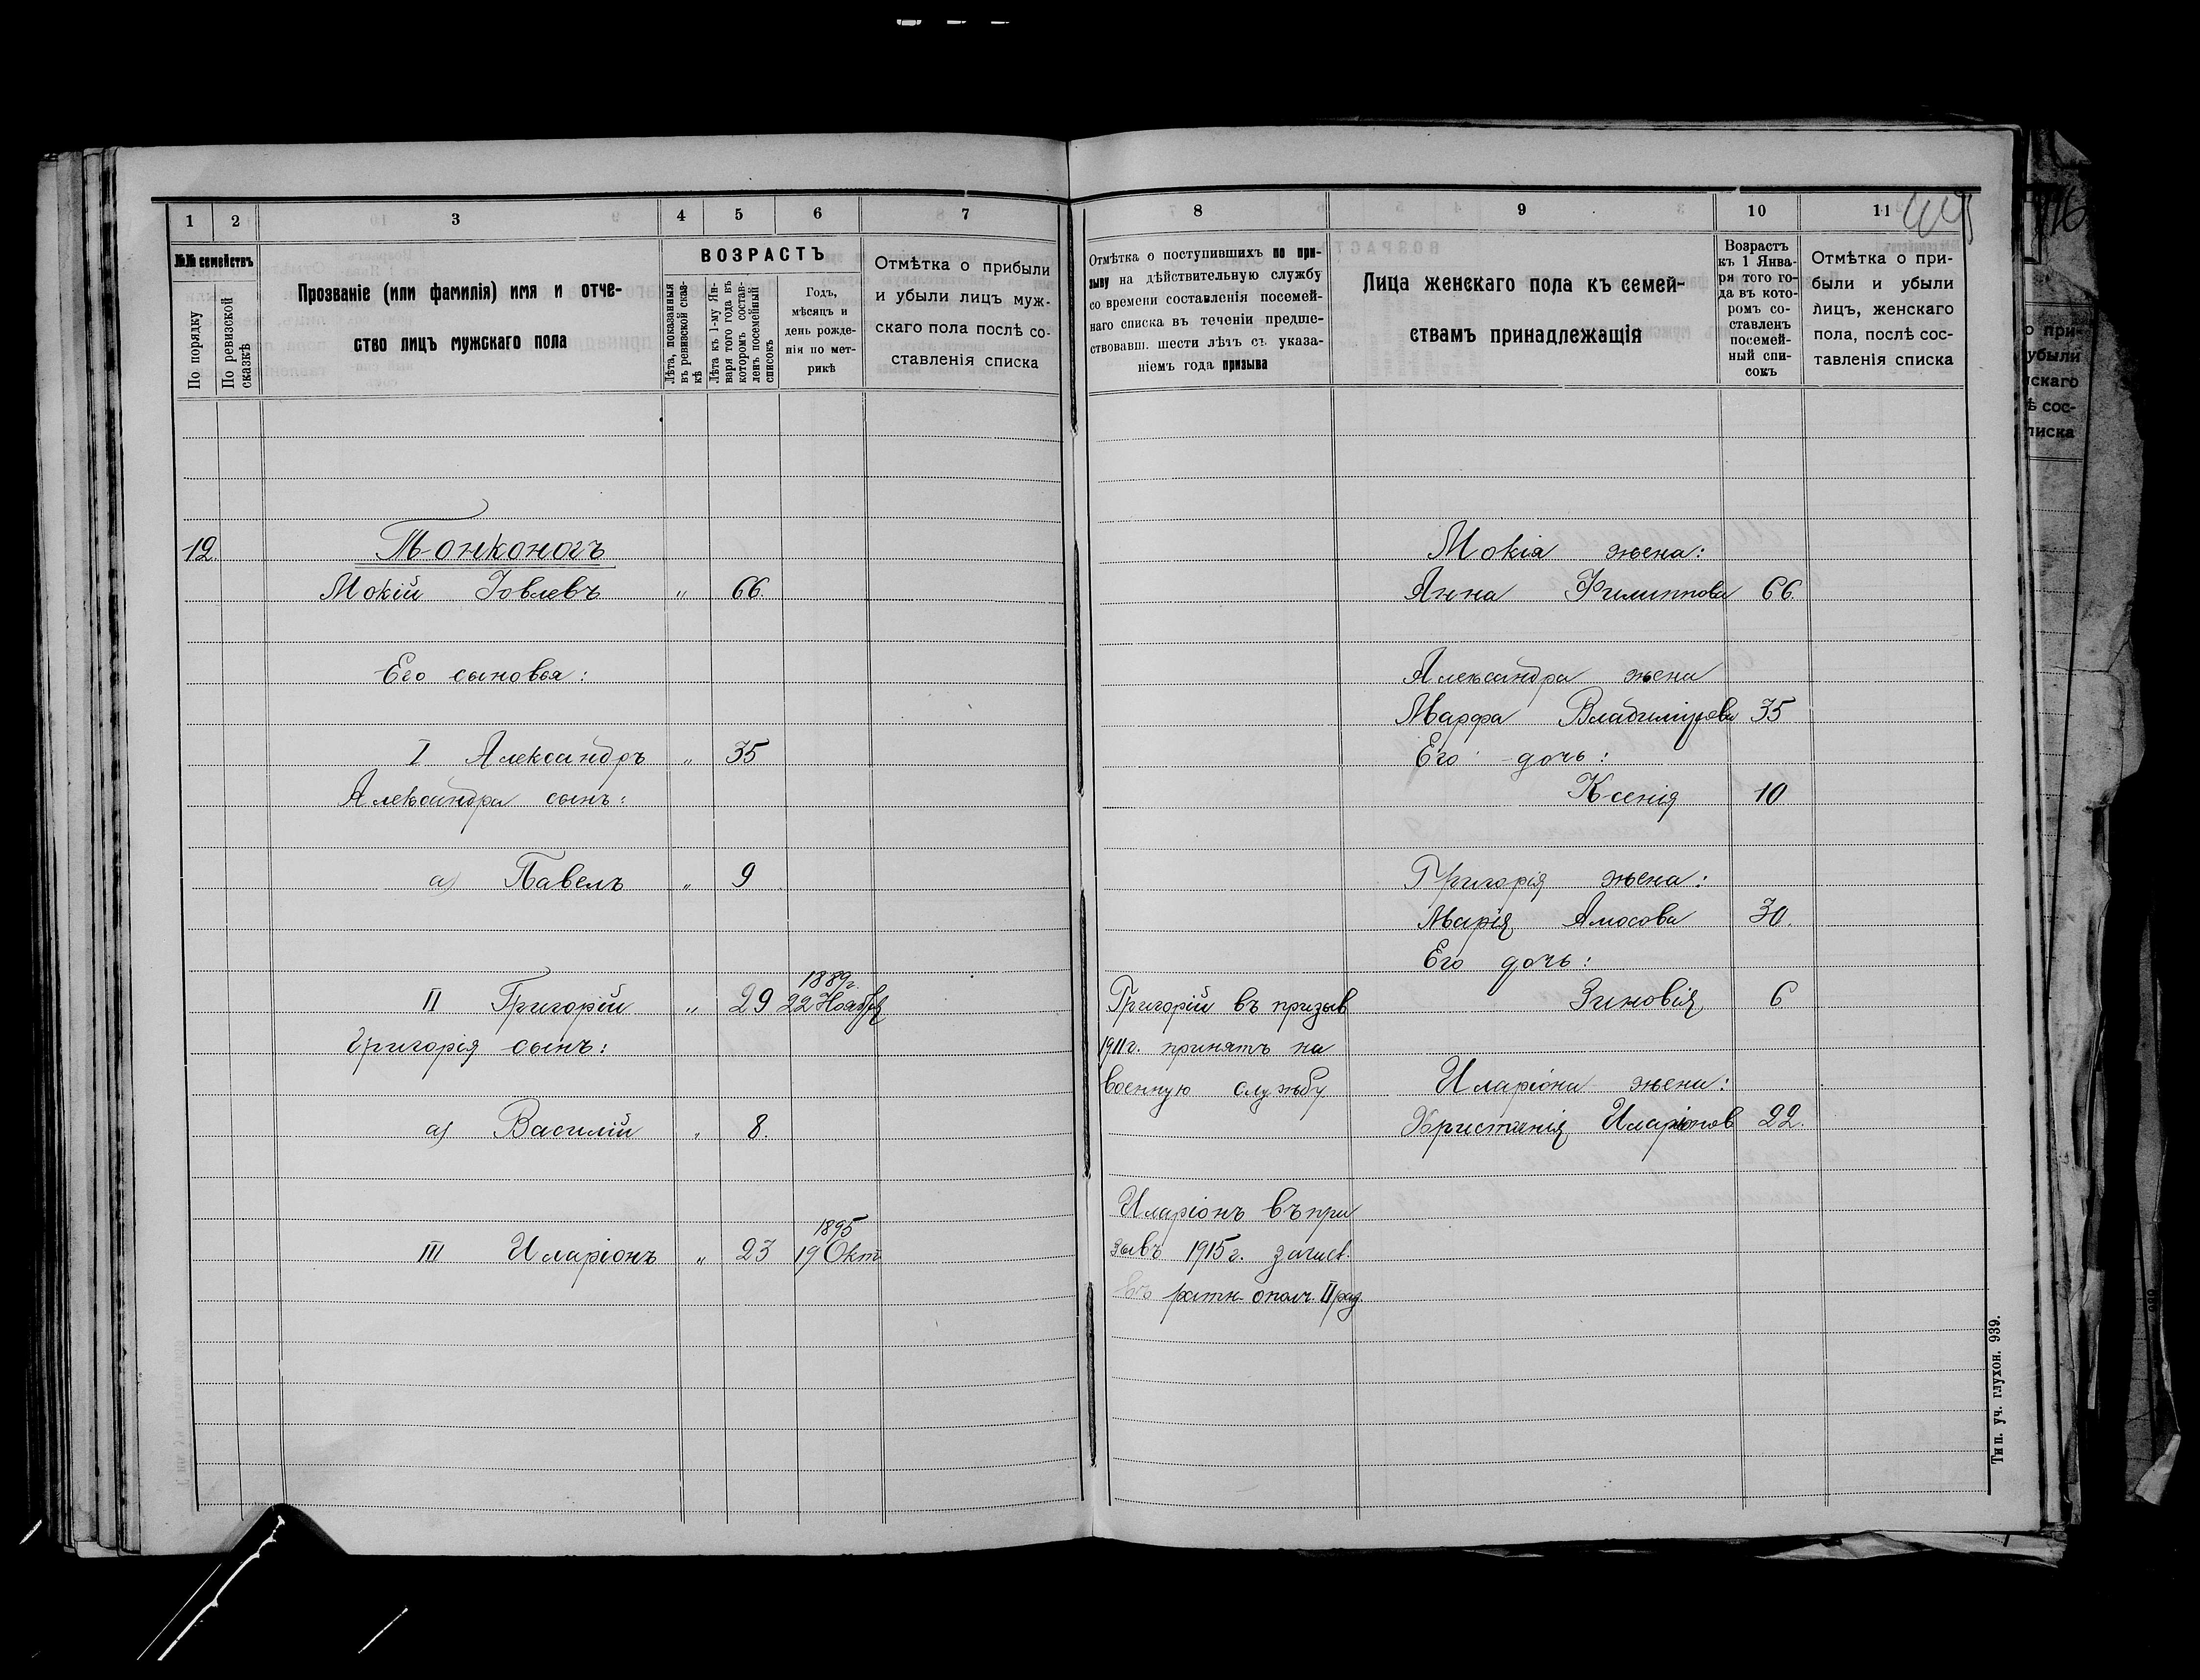 1 2 3 4 5 6 7
№№ семействъ
По порядку
По ревизской сказкѣ
Прозваніе (или фамилія) имя и отче-
ство лицъ мужскаго пола
ВОЗРАСТЪ
Лѣта, показанныя
въ ревизской сказ-
кѣ
Лѣта къ 1-му Ян-
варя того года въ
которомъ состав-
ленъ посемейный
списокъ
Годъ,
мѣсяцъ и
день рожде-
нія по мет-
рикѣ
Отмѣтка о прибыли
и убыли лицъ муж-
скаго пола послѣ со-
ставленія списка
12. Тонконогъ
Мокій Іовлевъ " 66.
Его сыновья:
I Александръ " 35
Александра сынъ:
а) Павелъ " 9
1889г.
II Григорій " 29 22 Ноября
Григорія сынъ:
а) Василій " 8.
1895
III Иларіонъ " 23 19 Окт
8 9 10 11
Отмѣтка о поступившихъ по при-
зыву на дѣйствительную службу
со времени составленія посемей-
наго списка въ теченіи предше-
ствовавш. шести лѣтъ съ указа-
ніемъ года призыва
Лица женскаго пола къ семей-
ствамъ принадлежащія
Возрастъ
къ 1 Янва-
ря того го-
да въ кото-
ромъ со-
ставленъ
посемей-
ный спи-
сокъ
Отмѣтка о при-
были и убыли
лицъ, женскаго
пола, послѣ сос-
тавленія списка
Мокія жена:
Анна Филиппова 66.
Александра жена
Марфа Владимірова 35
Его дочь:
Ксенія 10
Григорія жена:
Марія Амосова 30.
Его дочь:
Григорій въ призыв Зиновія 6
1911г. принятъ на
военную службу Иларіона жена:
Христинія Иларіонов 22.
Иларіонъ въ при
зывъ 1915г. зачисл.
въ ратн. ополч. II раз.
Тип. уч. глухон. 939.
116
о при-
убыли
скаго
ѣ сос-
писка